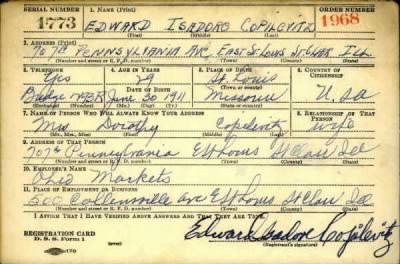 SERIAL NUMBER 1. NAME (Print) ORDER NUMBER
1773 EDWARD ISADORE COPILEVITZ 1968
(First) (Middle) (Last)
2. ADDRESS (Print)
707A PENNSYLVANIA AVE. EAST St. Louis St. Clair ILL
(Number and street or R. F. D. number) (Town) (County) (State)
3. TELEPHONE 4. AGE IN YEARS 5. PLACE OF BIRTH 6. COUNTRY OF CITIZENSHIP
Yes 29 St. Louis
DATE OF BIRTH (Town or county)
June 30 1911 Missouri U.S.A
(Exchange) (Number) (Mo.) (Day) (Yr.) (State or country)
7. NAME OF PERSON WHO WILL ALWAYS KNOW YOUR ADDRESS 8. RELATIONSHIP OF THAT PERSON
Mrs Dorothy Copilevitz wife
(Mr., Mrs., Miss) (First) (Middle) (Last)
9. ADDRESS OF THAT PERSON
707A Pennsylvania E St Louis St Clair Ill
(Number and street or R. F. D. number) (Town) (County) (State)
10. EMPLOYER'S NAME
Ohio Markets
11. PLACE OF EMPLOYMENT OR BUSINESS
500 Collinsville ave E St Louis St Clair Ill
(Number and street or R. F. D. number) (Town) (County) (State)
I AFFIRM THAT I HAVE VERIFIED ABOVE ANSWERS AND THAT THEY ARE TRUE.
REGISTRATION CARD
D. S. S. Form 1 Edward Isadore Copilevitz
(Registrant's signature)